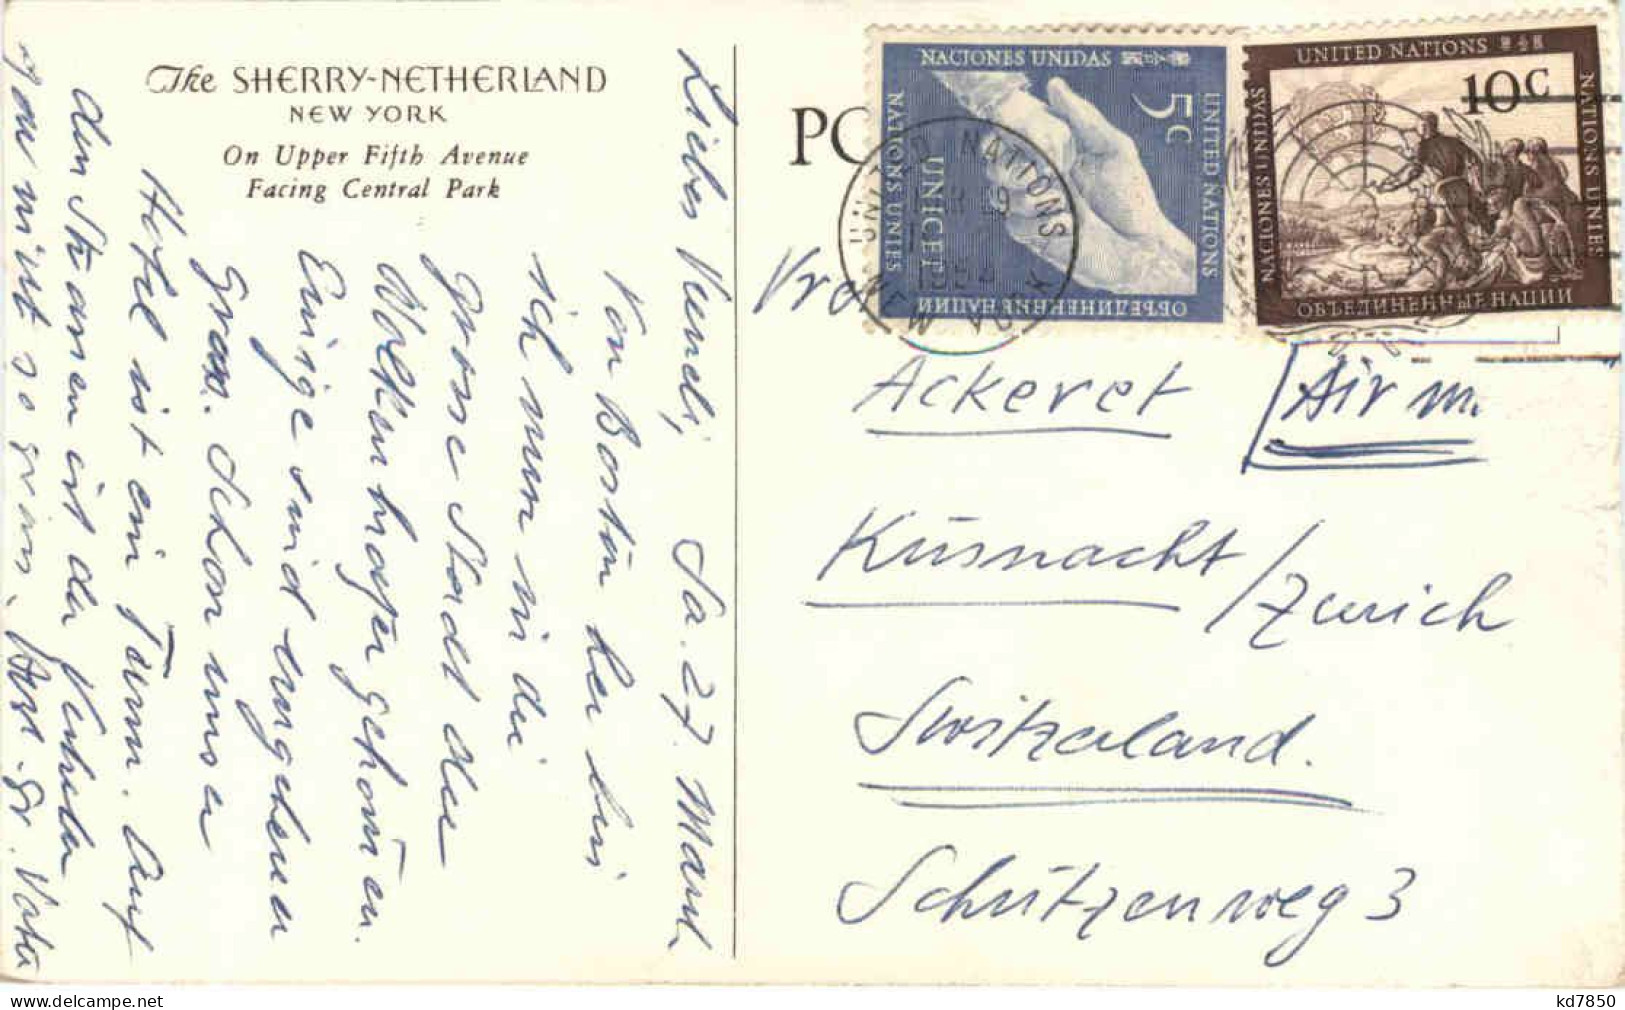 The SHERRY-NETHERLAND
NEW YORK
On Upper Fifth Avenue
Facing Central Park
Sa. 27. März
Liebes Vreneli,
Von Boston her bin
ich nun in der
grosse Stadt der
Wolkenkratzer gekommen.
Einige sind ungeheuer
gross. Schon unser
Hotel ist ein Turm. Auf
den Strassen ist der Verkehr
gar nicht so gross. Vater
PO
NACIONES UNIDAS
UNITED NATIONS
NATIONS UNIES
ОБЪЕДИНЕННЫЕ НАЦИИ
UNICEF
5c
UNITED NATIONS
NACIONES UNIDAS
NATIONS UNIES
ОБЪЕДИНЕННЫЕ НАЦИИ
10c
UNITED NATIONS
Ackeret
Air m.
Küsnacht
/Zurich
Switzerland.
Schützenweg 3
kd7850